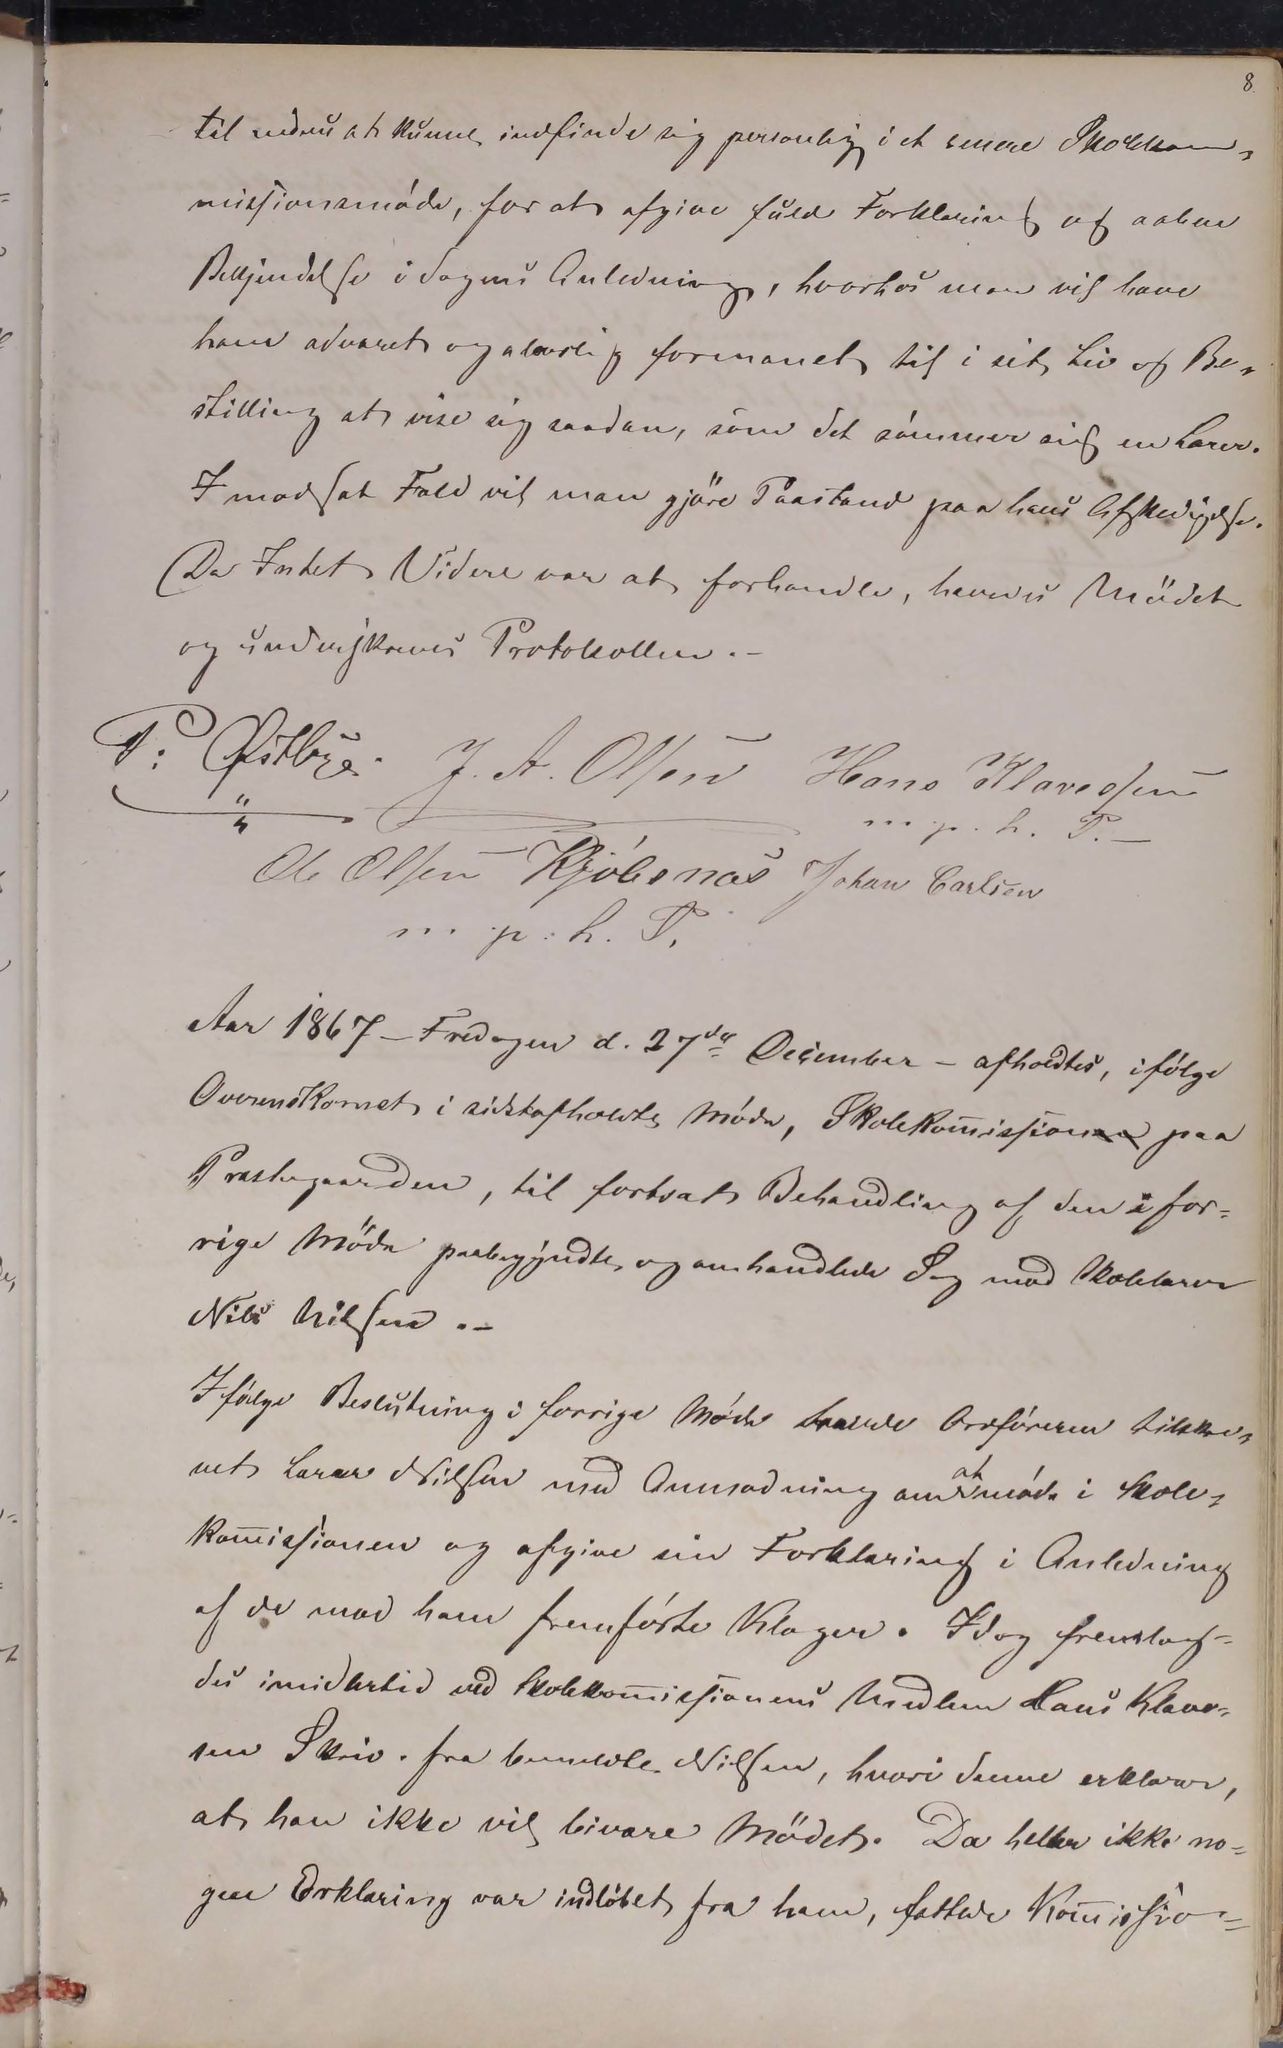 8
til endnu at kunne indfinde sig personlig i et senere Skolekom-
missionsmöde, for at afgive fuld Forklaring og aaben
Bekjendelse i Sagens Anledning, hvorhos man vil have
ham advaret og alvorlig formanet til i sit Liv og Be-
stilling at vise sig saadan, som det sömmer sig en Lærer.
I modsat Fald vil man gjöre Paastand paa hans Afskedigelse.
Da Intet Videre var at forhandle, hævedes Mödet
og underskreves Protokollen.-
P. Østbye. J. A. Olsen Hans Klavesen
m. p. h. P.-
Ole Olsen Kjöbsnæs Johan Carlsen
m. p. h. P.
Aar 1867 - Fredagen d. 27de December - afholdtes, ifölge
Overenskomst i sidstafholdte Möde, Skolekommission paa
Præstegaarden, til fortsat Behandling af den i for-
rige Möde paabegyndte og omhandlede Sag mod Skolelærer
Nils Nilsen.-
Ifölge Beslutning i forrige Möde havde Ordföreren tilskre-
vet Lærer Nilsen med Anmodning om at möde i Skole-
kommissionen og afgive sin Forklaring i Anledning
af de mod ham fremförte Klager. Idag fremlag-
des imidlertid ved Skolekommissionens Medlem Hans Klave-
sen Skriv. fra bemeldte Nilsen, hvori denne erklærer,
at han ikke vil bivære Mödet. Da heller ikke no-
gen Erklæring var indlöbet fra ham, fattede Kommissio-